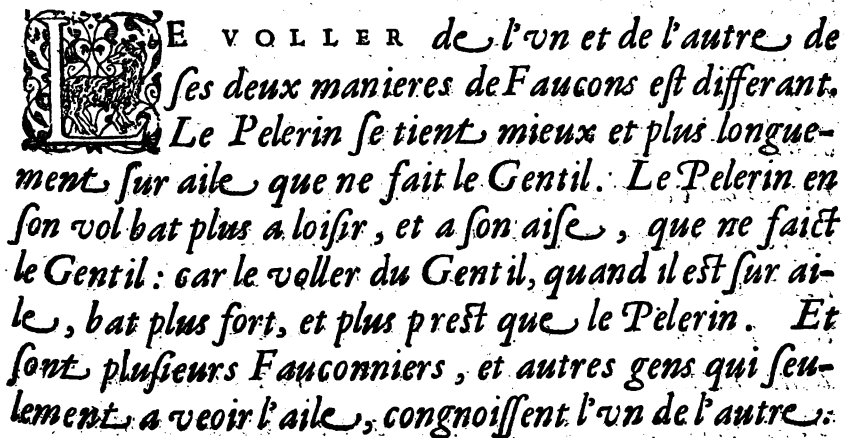 LE VOLLER de l'vn et de l'autre de
ſes deux manieres de Faucons eſt differant.
Le Pelerin ſe tient mieux et plus longue-
ment ſur aile que ne fait le Gentil. Le Pelerin en
ſon vol bat plus a loiſir, et a ſon aiſe, que ne faict
le Gentil: car le voller du Gentil, quand il eſt ſur ai-
le, bat plus fort, et plus preſt que le Pelerin. Et
ſont pluſieurs Fauconniers, et autres gens qui ſeu-
lement a veoir l'aile, congnoiſſent l'vn de l'autre: